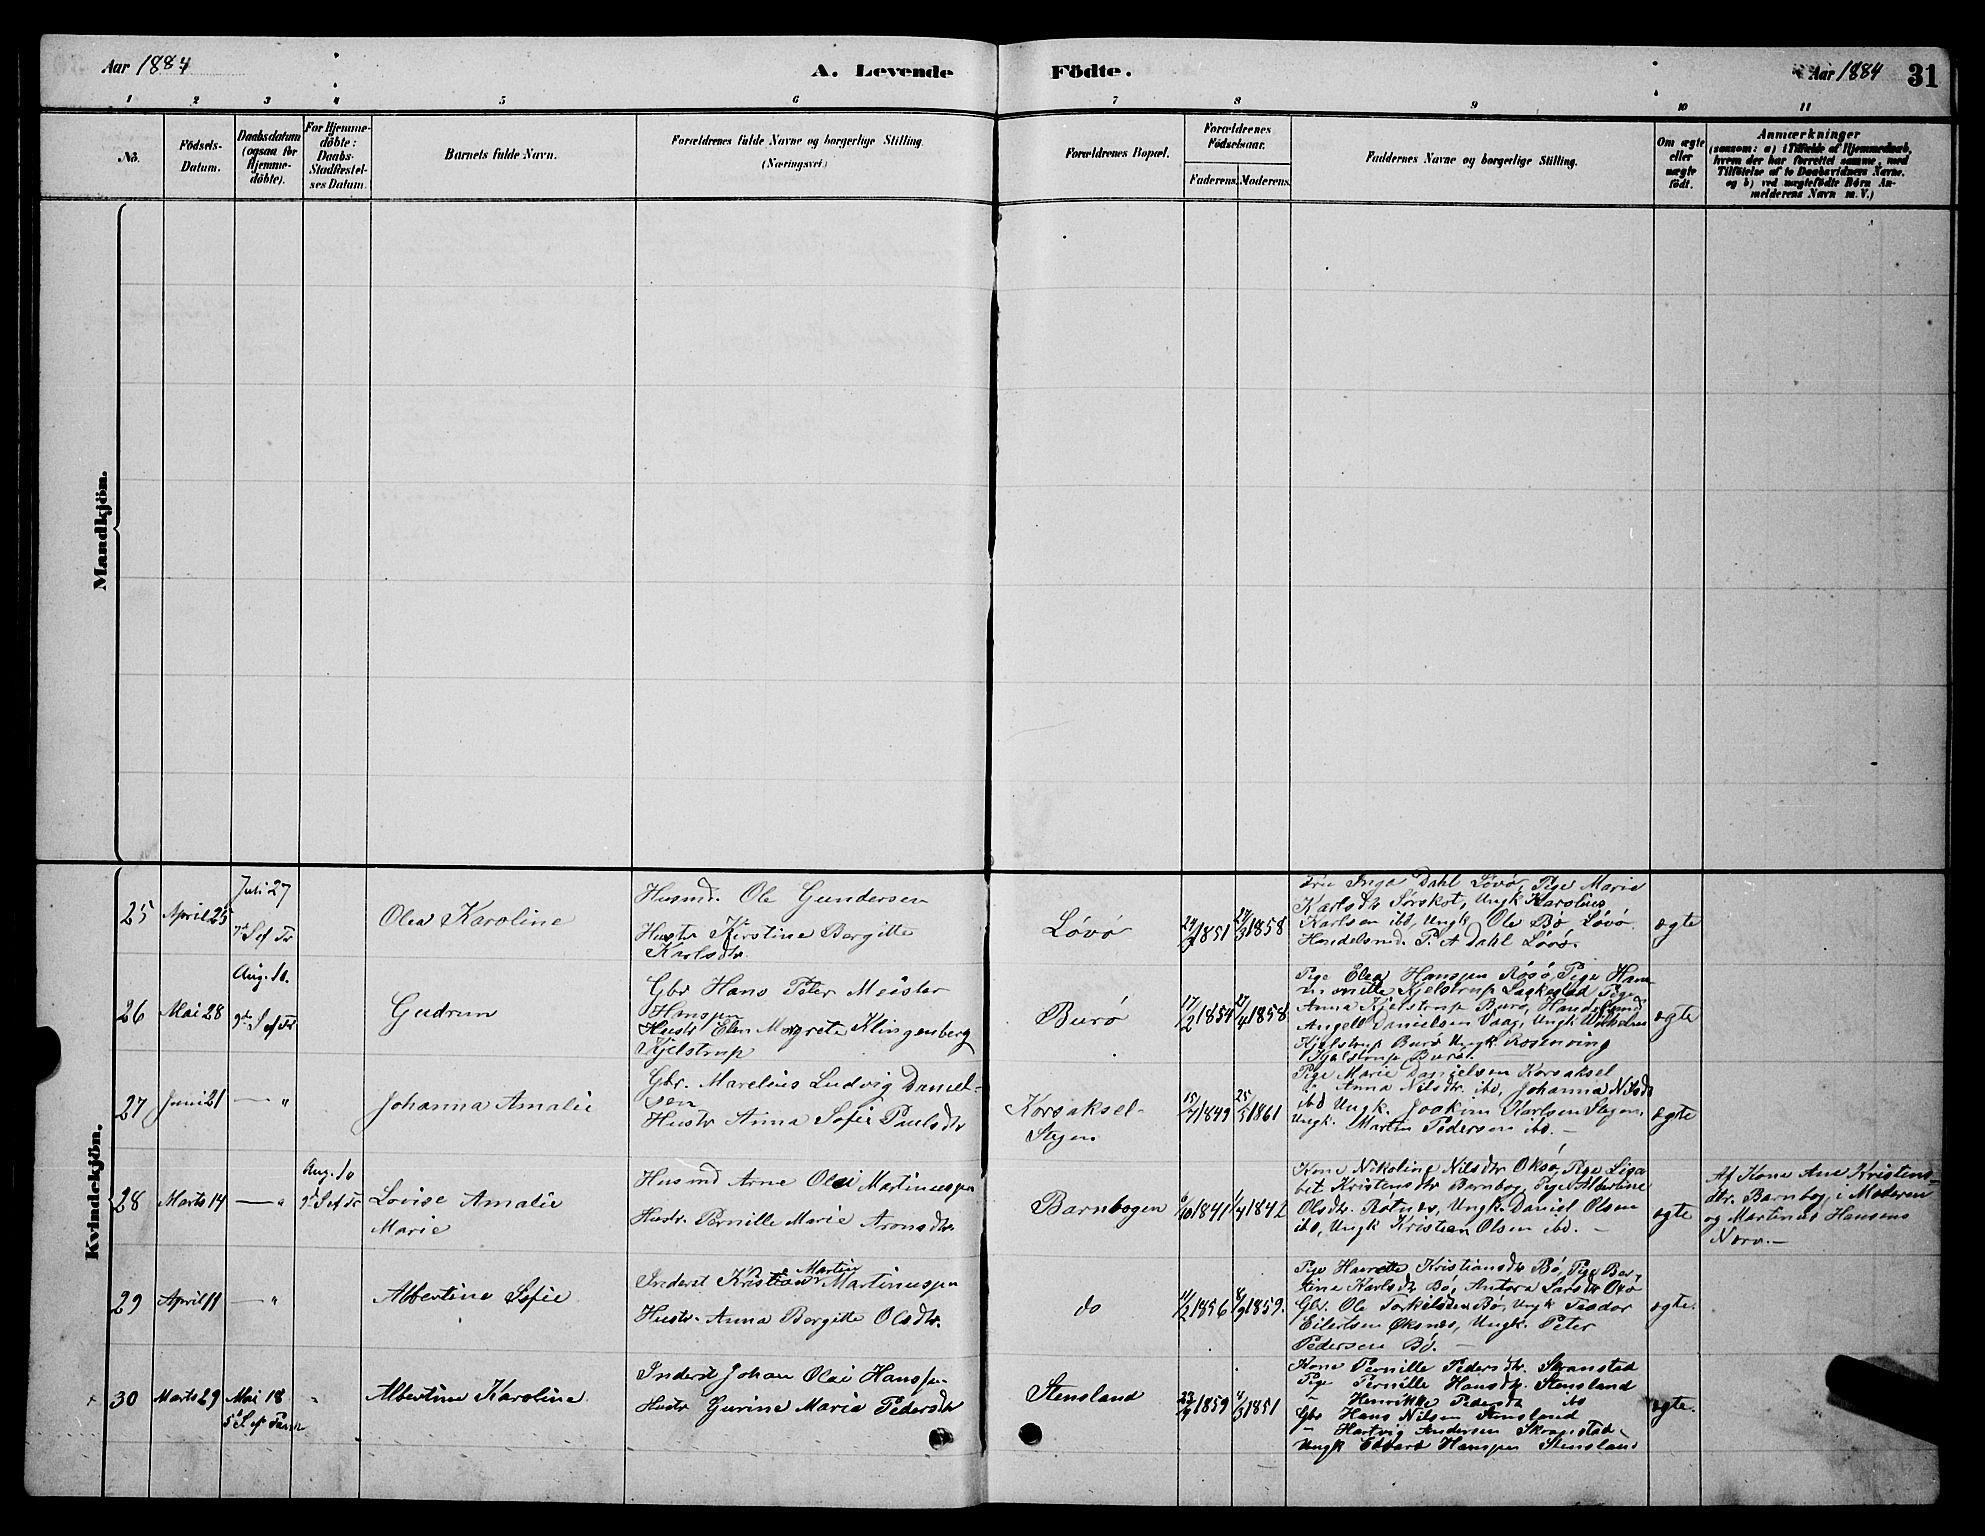 Aar 1884
A. Levende Födte.
Aar 1884
31
1 2 3 4 5 6 7 8 9 10 11
No.
Födsels-
Datum.
Daabsdatum
(ogsaa for
Hjemme-
döbte).
For Hjemme-
döbte:
Daabs-
Stadfæstel-
ses Datum.
Barnets fulde Navn.
Forældrenes fulde Navne og borgerlige Stilling.
(Næringsvei)
Forældrenes Bopæl.
Forældrenes
Födselsaar.
Faderens. Moderens.
Faddernes Navne og borgerlige Stilling.
Om ægte
eller
uægte
födt.
Anmærkninger
(saasom: a) i Tilfælde af Hjemmedaab,
hvem der har forrettet samme, med
Tilföielse af to Daabsvidners Navne,
og b) ved uægtefödte Börn An-
melderens Navn m. V.)
Mandkjön.
Kvindekjön.
25
April 25
Juli 27
7d S ef Tr
Olea Karoline
Husmd. Ole Gundersen
Hustr Kirstine Bergitte
Karlsdtr
Løvø
24/2 1851
27/3 1858
Frue Inga Dahl Løvø, Pige Marie
Karlsdtr Sørskot, Ungk Karolius
Karlsen ibd, Ungk Ole Bø Løvø
Handelsmd. P. A Dahl Løvø.
ægte
26
Mai 28
Aug. 10.
9de S ef Tr
Gudrun
Gbr Hans Peter Meister
Hanssen
Hustr Elen Margrete Klingenberg
Kjelstrup
Burø
17/2 1854
27/4 1858
Pige Elea Hanssen Røsø, Pige Han-
Kjelstrup
Anna Kjelstrup Burø, Handelsmd
Angell Danielsen Vaag, Ungk Wilhelm
Kjelstrup Burø Ungk. Rosenving
Kjelstrup Burø.
ægte
27
Juni 21
— "
Johanna Amalie
Gbr. Marelius Ludvig Daniel-
sen
Hustr Anna Sofie Paulsdtr
Korsaksel-
Stegen
15/4 1849
25/5 1861
Pige Marie Danielsen Korsaksel
Anna Nilsdtr. ibd, Johanna Nilsdtr
ibd Ungk. Joakim Karlsen Stegen,
Ungk. Martin Pedersen ibd. —
ægte
28
Marts 14
— "
Aug. 10
9d S ef Tr
Lovise Amalie
Marie
Husmd Arne Olai Martinussen
Hustr. Pernille Marie Aronsdtr.
Barnbogen
6/10 1841
1/4 1842
Kone Nikoline Nilsdtr Oksø, Pige Lisa-
bet Kristensdtr Barnbog, Pige Albertine
Olsdtr. Røtnes, Ungk Daniel Olsen
ibd, Ungk Kristian Olsen ibd. —
ægte
Af Kone Ane Kristens-
dtr. Barnbog, i Moderen
og Martinus Hansens
Nærv.—
29
April 11
— "
Albertine Sofie
Inderst Kristian Martin Martinussen
Hustr. Anna Bergitte Olsdtr.
do
11/2 1856
8/9 1859.
Pige Kristiansdtr Bø, Pige Ber-
tine Karlsdtr Bø, Antora Larsdtr
Gbr. Ole Torkildsen Bø, Ungk Teodor
Eilertsen Øksnes, Ungk. Peter
Pedersen Bø. —
ægte.
30
Marts 29
Mai 18
5d S ef Paask
"
Albertine Karoline
Inderst Johan Olai Hanssen
Hustr Gurine Marie Pedersdtr
Stensland
23/9 1859
4/3 1851
Kone Pernille Pedersdtr. Skranstad
Pige Pernille Hansdtr. Stensland
" Henrikke Pedersdtr ibd
Gbr Hans Nilsen Stensland
" Hartvig Andersen Skranstad
Ungk Edvard Hanssen Stensland
ægte.